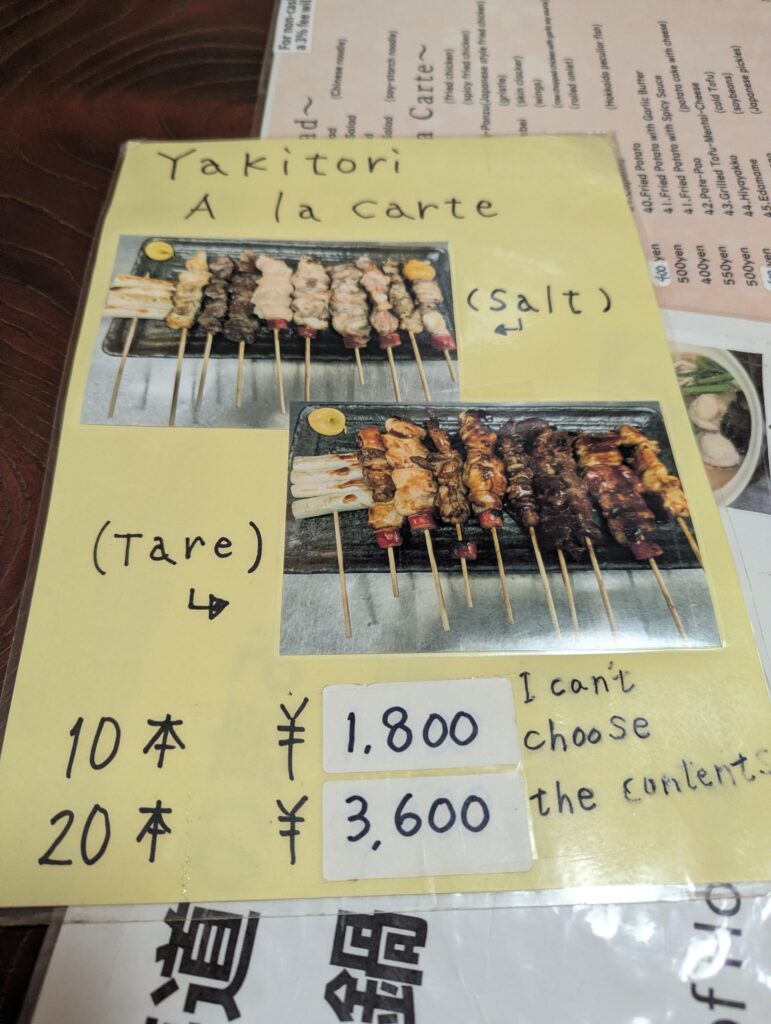 Yakitori
A la carte
(Salt)
(Tare)
10本 ¥ 1.800
20本 ¥ 3,600
I can't
choose
the contents
For non-cas
a 3% fee wil
(Chinese noodle)
Salad
(soy-starch noodle)
Salad
a Carte~
(fried chicken)
(spicy fried chicken)
-Ponzu(Japanese style fried chicken)
(gristle)
(skin clacker)
(wings)
(rolled omlet)
(Hokkaido peculiar fish)
40.Fried Potato with Garlic Butter 400yen
41.Fried Potato with Spicy Sauce 500yen
41.Fried Potato (potato cake with cheese)
42.Pote-Pao 400yen
43.Grilled Tofu-Mentai-Cheese 550yen
44.Hiyayakko (cold Tofu) 500yen
45.Edamame (soybeans)
(Japanese pickles)
道
鍋
of Ho